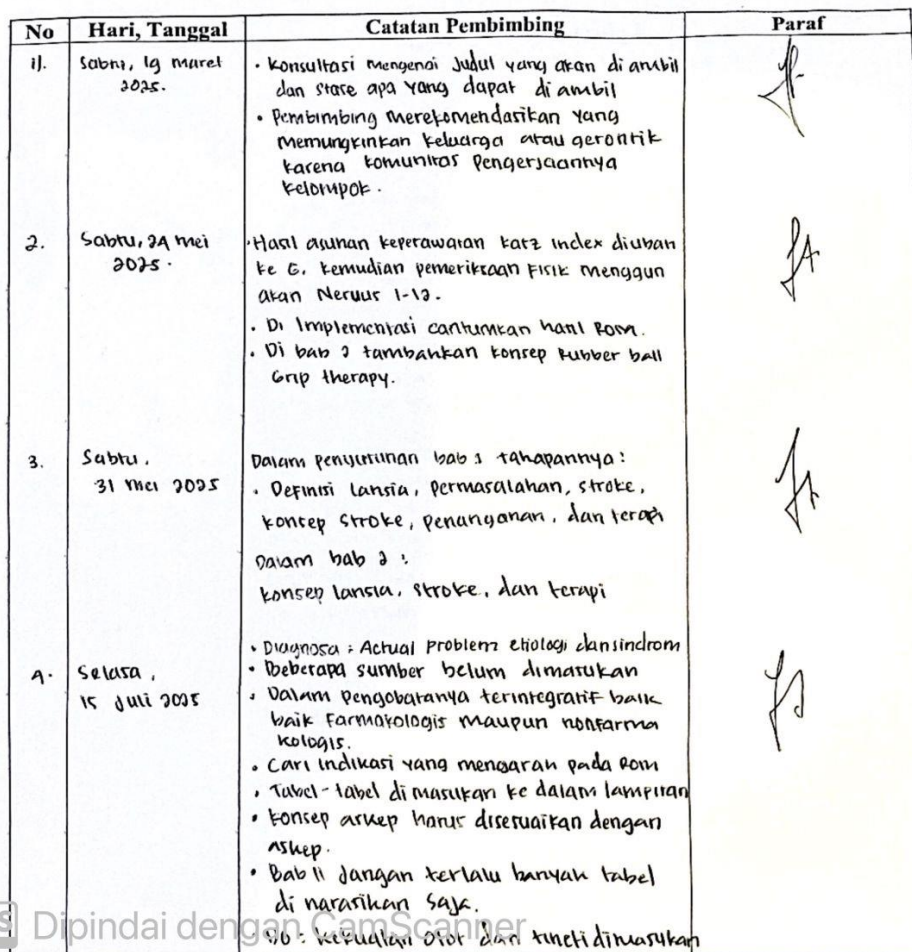 No Hari, Tanggal Catatan Pembimbing Paraf
1). Sabtu, 19 maret • Konsultasi mengenai Judul yang akan di ambil
2025. dan stase apa yang dapat di ambil
• Pembimbing merekomendasikan yang
memungkinkan keluarga atau gerontik
karena komunitas Pengerjaannya
kelompok.
2. Sabtu, 24 mei • Hasil asuhan keperawatan katz index diubah
2025. ke G. kemudian pemeriksaan Fisik menggun
akan Nervus 1-12.
• Di Implementasi cantumkan hasil ROM.
• Di bab 2 tambahkan konsep Rubber ball
Grip therapy.
3. Sabtu, Dalam penyusunan bab 1 tahapannya :
31 mei 2025 • Definisi lansia, permasalahan, stroke,
konsep stroke, penanganan, dan terapi
Dalam bab 2 :
konsep lansia, stroke, dan terapi
• Diagnosa : Actual Problem etiologi dan sindrom
4. Selasa, • Beberapa sumber belum dimasukan
15 Juli 2025 • Dalam pengobatanya terintegratif baik
baik Farmakologis maupun nonfarma
kologis.
• Cari indikasi yang mengarah pada ROM
• Tabel-tabel di masukan ke dalam lampiran
• konsep askep harus disesuaikan dengan
askep.
• Bab II Jangan terlalu banyak tabel
di narasikan saja.
kekuatan otot dan dimasukan
Dipindai dengan CamScanner